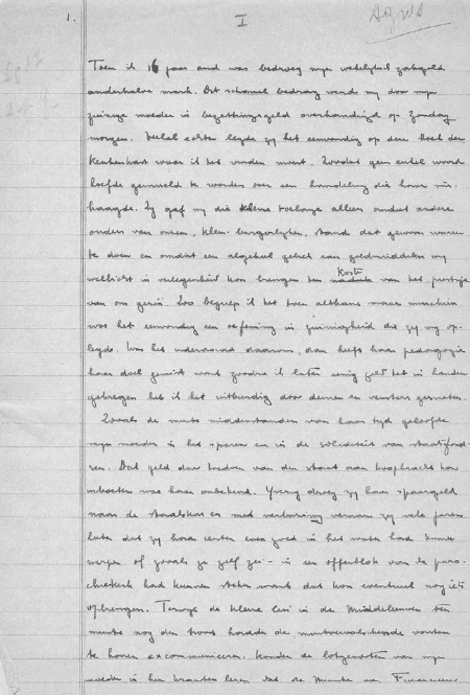 1. I
Toen ik 16 jaar oud was bedroeg mijn wekelijksch zakgeld
anderhalve mark. Dit schamel bedrag werd mij door mijn
zuinige moeder in bezettingsgeld overhandigd op Zondag
morgen. Veelal echter legde zij het eenvoudig op den hoek der
keukenkast waar ik het vinden moest. Zoodat geen enkel woord
hoefde gewisseld te worden over een handeling die haar mis-
haagde. Zij gaf mij die kleine toelage alleen omdat andere
ouders van onzen, klein-burgerlijken, stand dat gewoon waren
te doen en omdat een algeheel gebrek aan geldmiddelen mij
wellicht in verlegenheid kon brengen ten koste van het prestige
van ons gezin. Zoo begreep ik het toen althans maar misschien
was het eenvoudig een oefening in zuinigheid die zij mij op-
legde. Was het inderdaad daarom, dan heeft haar pedagogie
haar doel gemist want zoodra ik later eenig geld in handen
gekregen heb ik het uitbundig door deuren en vensters gesmeten.
Zooals de meeste middenstanders van haar tijd geloofde
mijn moeder in het sparen en in de soliditeit van staatsfond-
sen. Dat geld door toedoen van den staat aan koopkracht kon
inboeten was haar onbekend. Yverig droeg zij haar spaargeld
naar de staatskas en met verbazing vernam zij vele jaren
later dat zij haar centen even goed in het water had kunnen
werpen of zooals ze zelf zei - in een offerblok van de paro-
chiekerk had kunnen steken want dat kon eventueel nog iets
opbrengen. Terwijl de kleine lui in de Middeleeuwen ten
minste nog den troost hadden de muntvervalschende vorsten
te hooren excommuniceeren. Konden de lotgenoten van mijn
moeder in hun kranten lezen dat de Minister van Financien